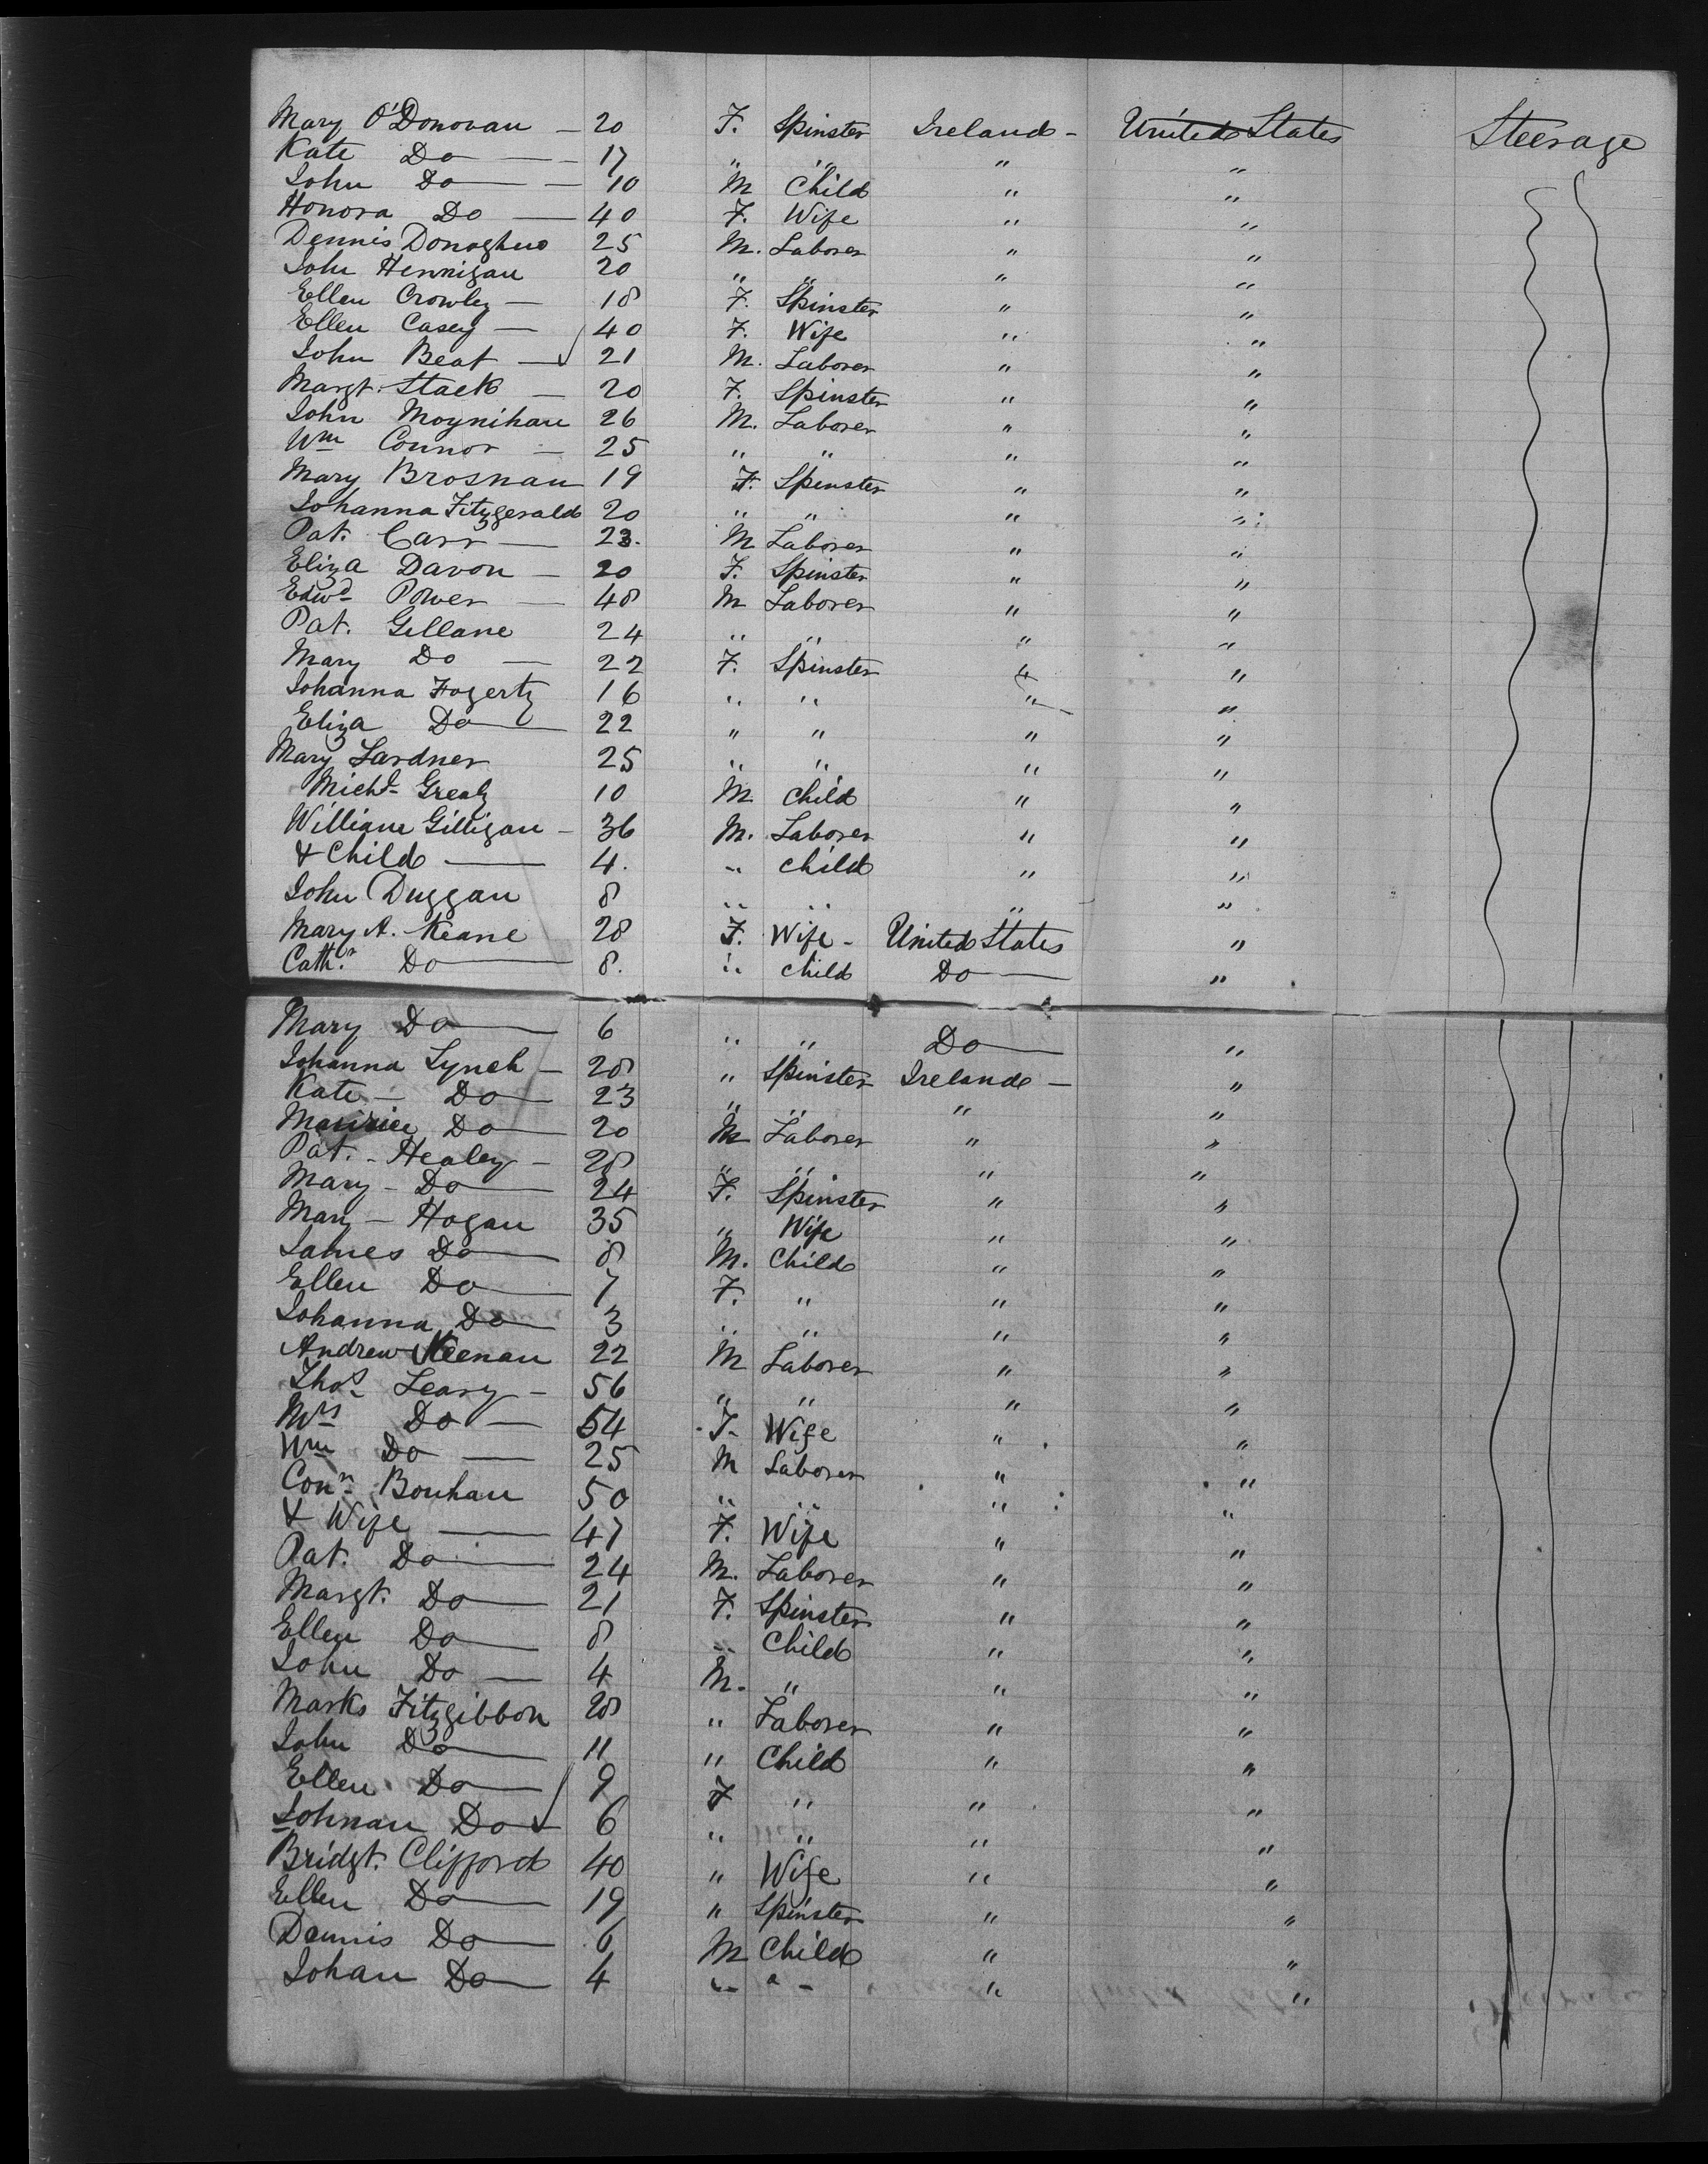 Mary O'Donovan — 20 F. Spinster Ireland - United States Steerage
Kate Do — 17 " " " "
John Do — 10 M Child " "
Honora Do — 40 F. Wife " "
Dennis Donoghue 25 M. Laborer " "
John Hennigan 20 " " " "
Ellen Crowley — 18 F. Spinster " "
Ellen Casey — 40 F. Wife " "
John Beat — 21 M. Laborer " "
Margt. Stack — 20 F. Spinster " "
John Moynihan 26 M. Laborer " "
Wm Connor — 25 " " " "
Mary Brosnan 19 F. Spinster " "
Johanna Fitzgerald 20 " " " "
Pat. Carr — 23. M Laborer " "
Eliza Davon — 20 F. Spinster " "
Edwd Power — 48 M Laborer " "
Pat. Gillane 24 " " " "
Mary Do — 22 F. Spinster " "
Johanna Fogerty 16 " " " "
Eliza Do — 22 " " " "
Mary Lardner 25 " " " "
Michl Grealy 10 M Child " "
William Gilligan - 36 M. Laborer " "
& Child — 4. " child " "
John Duggan 8 " " " "
Mary A. Keane 28 F. Wife - United States "
Cathn Do — 8. " child Do — "
Mary Do — 6 " " Do — "
Johanna Lynch - 28 " Spinster Ireland - "
Kate - Do — 23 " " " "
Maurice Do — 20 M Laborer " "
Pat. - Healey - 28 " " " "
Mary - Do — 24 F. Spinster " "
Mary - Hogan 35 " Wife " "
James Do — 8 M. Child " "
Ellen Do — 7 F. " " "
Johanna Do — 3 " " " "
Andrew Keenan 22 M Laborer " "
Thos Leary - 56 " " " "
Mrs Do — 54 F. Wife " "
Wm Do — 25 M Laborer " "
Conn Bouhan 50 " " " "
& Wife — 47 F. Wife " "
Pat. Do — 24 M. Laborer " "
Margt. Do — 21 F. Spinster " "
Ellen Do — 8 " Child " "
John Do — 4 M. " " "
Marks Fitzgibbon 28 " Laborer " "
John Do — 11 " Child " "
Ellen Do — 9 F " " "
Johnan Do 6 " " " "
Bridgt. Clifford 40 " Wife " "
Ellen Do — 19 " Spinster " "
Dennis Do — 6 M Child " "
Johan Do — 4 " " " "